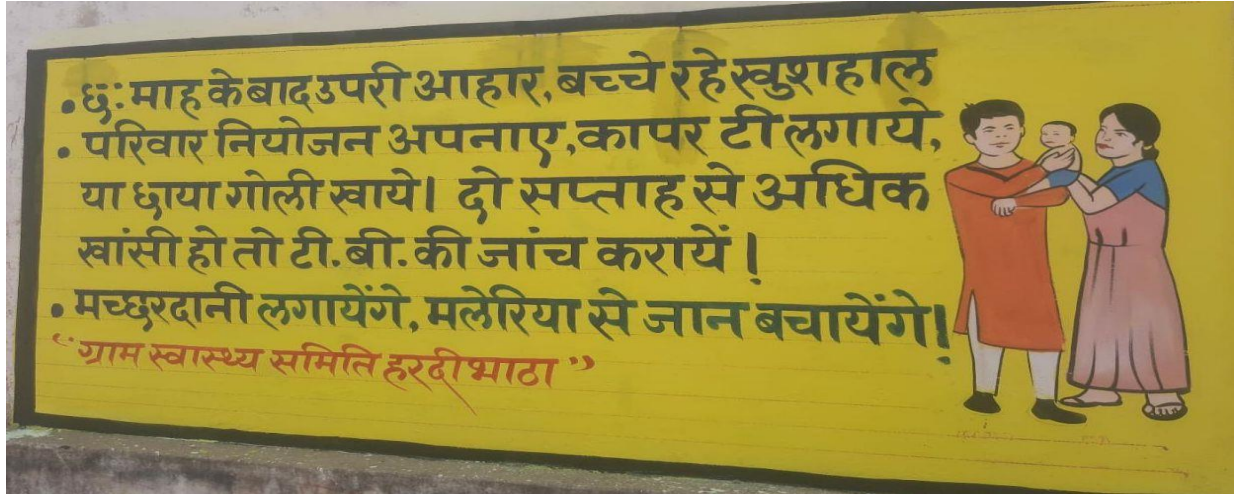 • छः माह के बाद उपरी आहार, बच्चे रहे खुशहाल
• परिवार नियोजन अपनाए, कापर टी लगाये,
या छाया गोली खाये। दो सप्ताह से अधिक
खांसी हो तो टी.बी. की जांच करायें!
• मच्छरदानी लगायेंगे, मलेरिया से जान बचायेंगे!
“ग्राम स्वास्थ्य समिति हरदीभाठा”